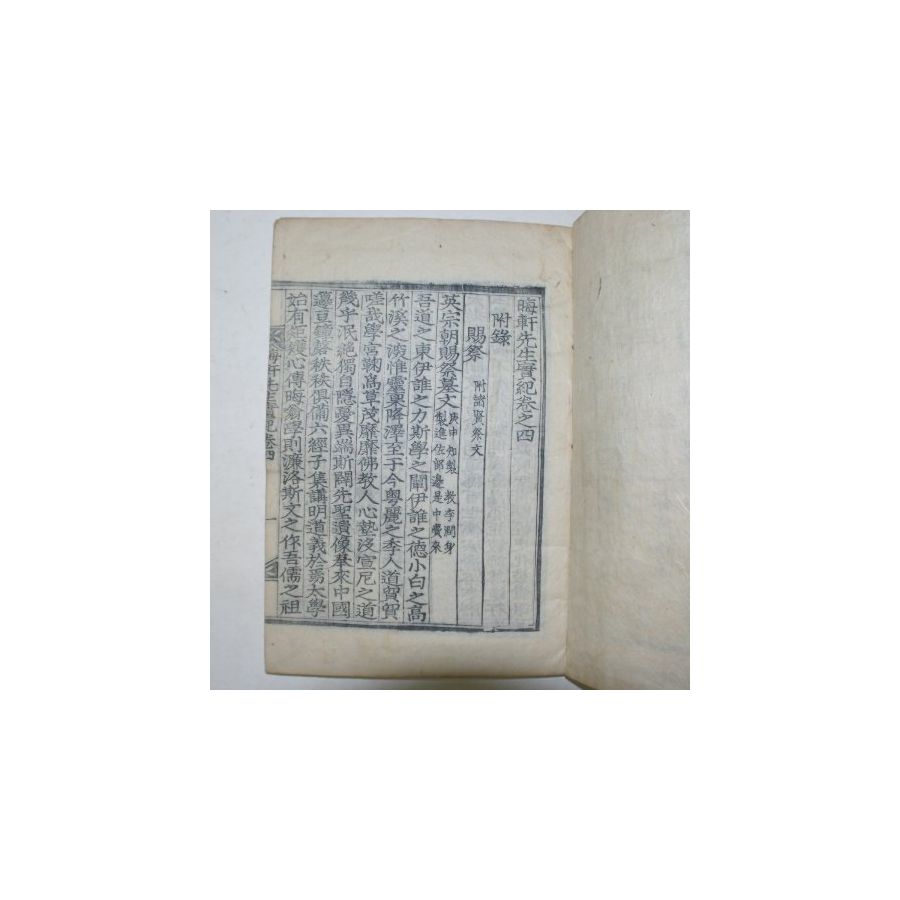 晦軒先生實紀卷之四
附錄
賜祭 附諸賢祭文
英宗朝賜祭墓文 庚申 知製敎李潤身
製進佐郞邊是中賫來
吾道之東伊誰之力斯學之闡伊誰之德小白之高
竹溪之淩惟靈稟降澤至于今粤麗之季人道貿貿
嗟哉學宮鞠爲草茂靡靡佛敎人心墊沒宣尼之道
幾乎泯絶獨自隱憂異端斯闢先聖遺像摹來中國
籩豆鍾磬秩秩俱備六經子集講明道義於焉太學
始有矩矱心傳晦翁學則濂洛斯文之作吾儒之祖
晦軒先生實紀卷四 一